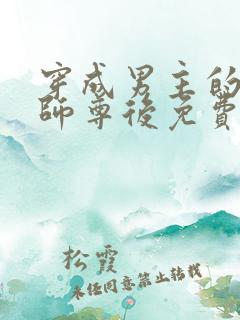 穿成男主的
師尊後免費
松霞
未经同意禁止转载